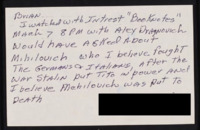 Brian
I watched with Intrest "Booknotes"
March 7 8PM with Alex Dragnich
Would have asked about
Mihilovich who I believe fought
The Germans & Italians, after the
War Stalin put Tito in power and
I believe Mihilovich was put to
Death